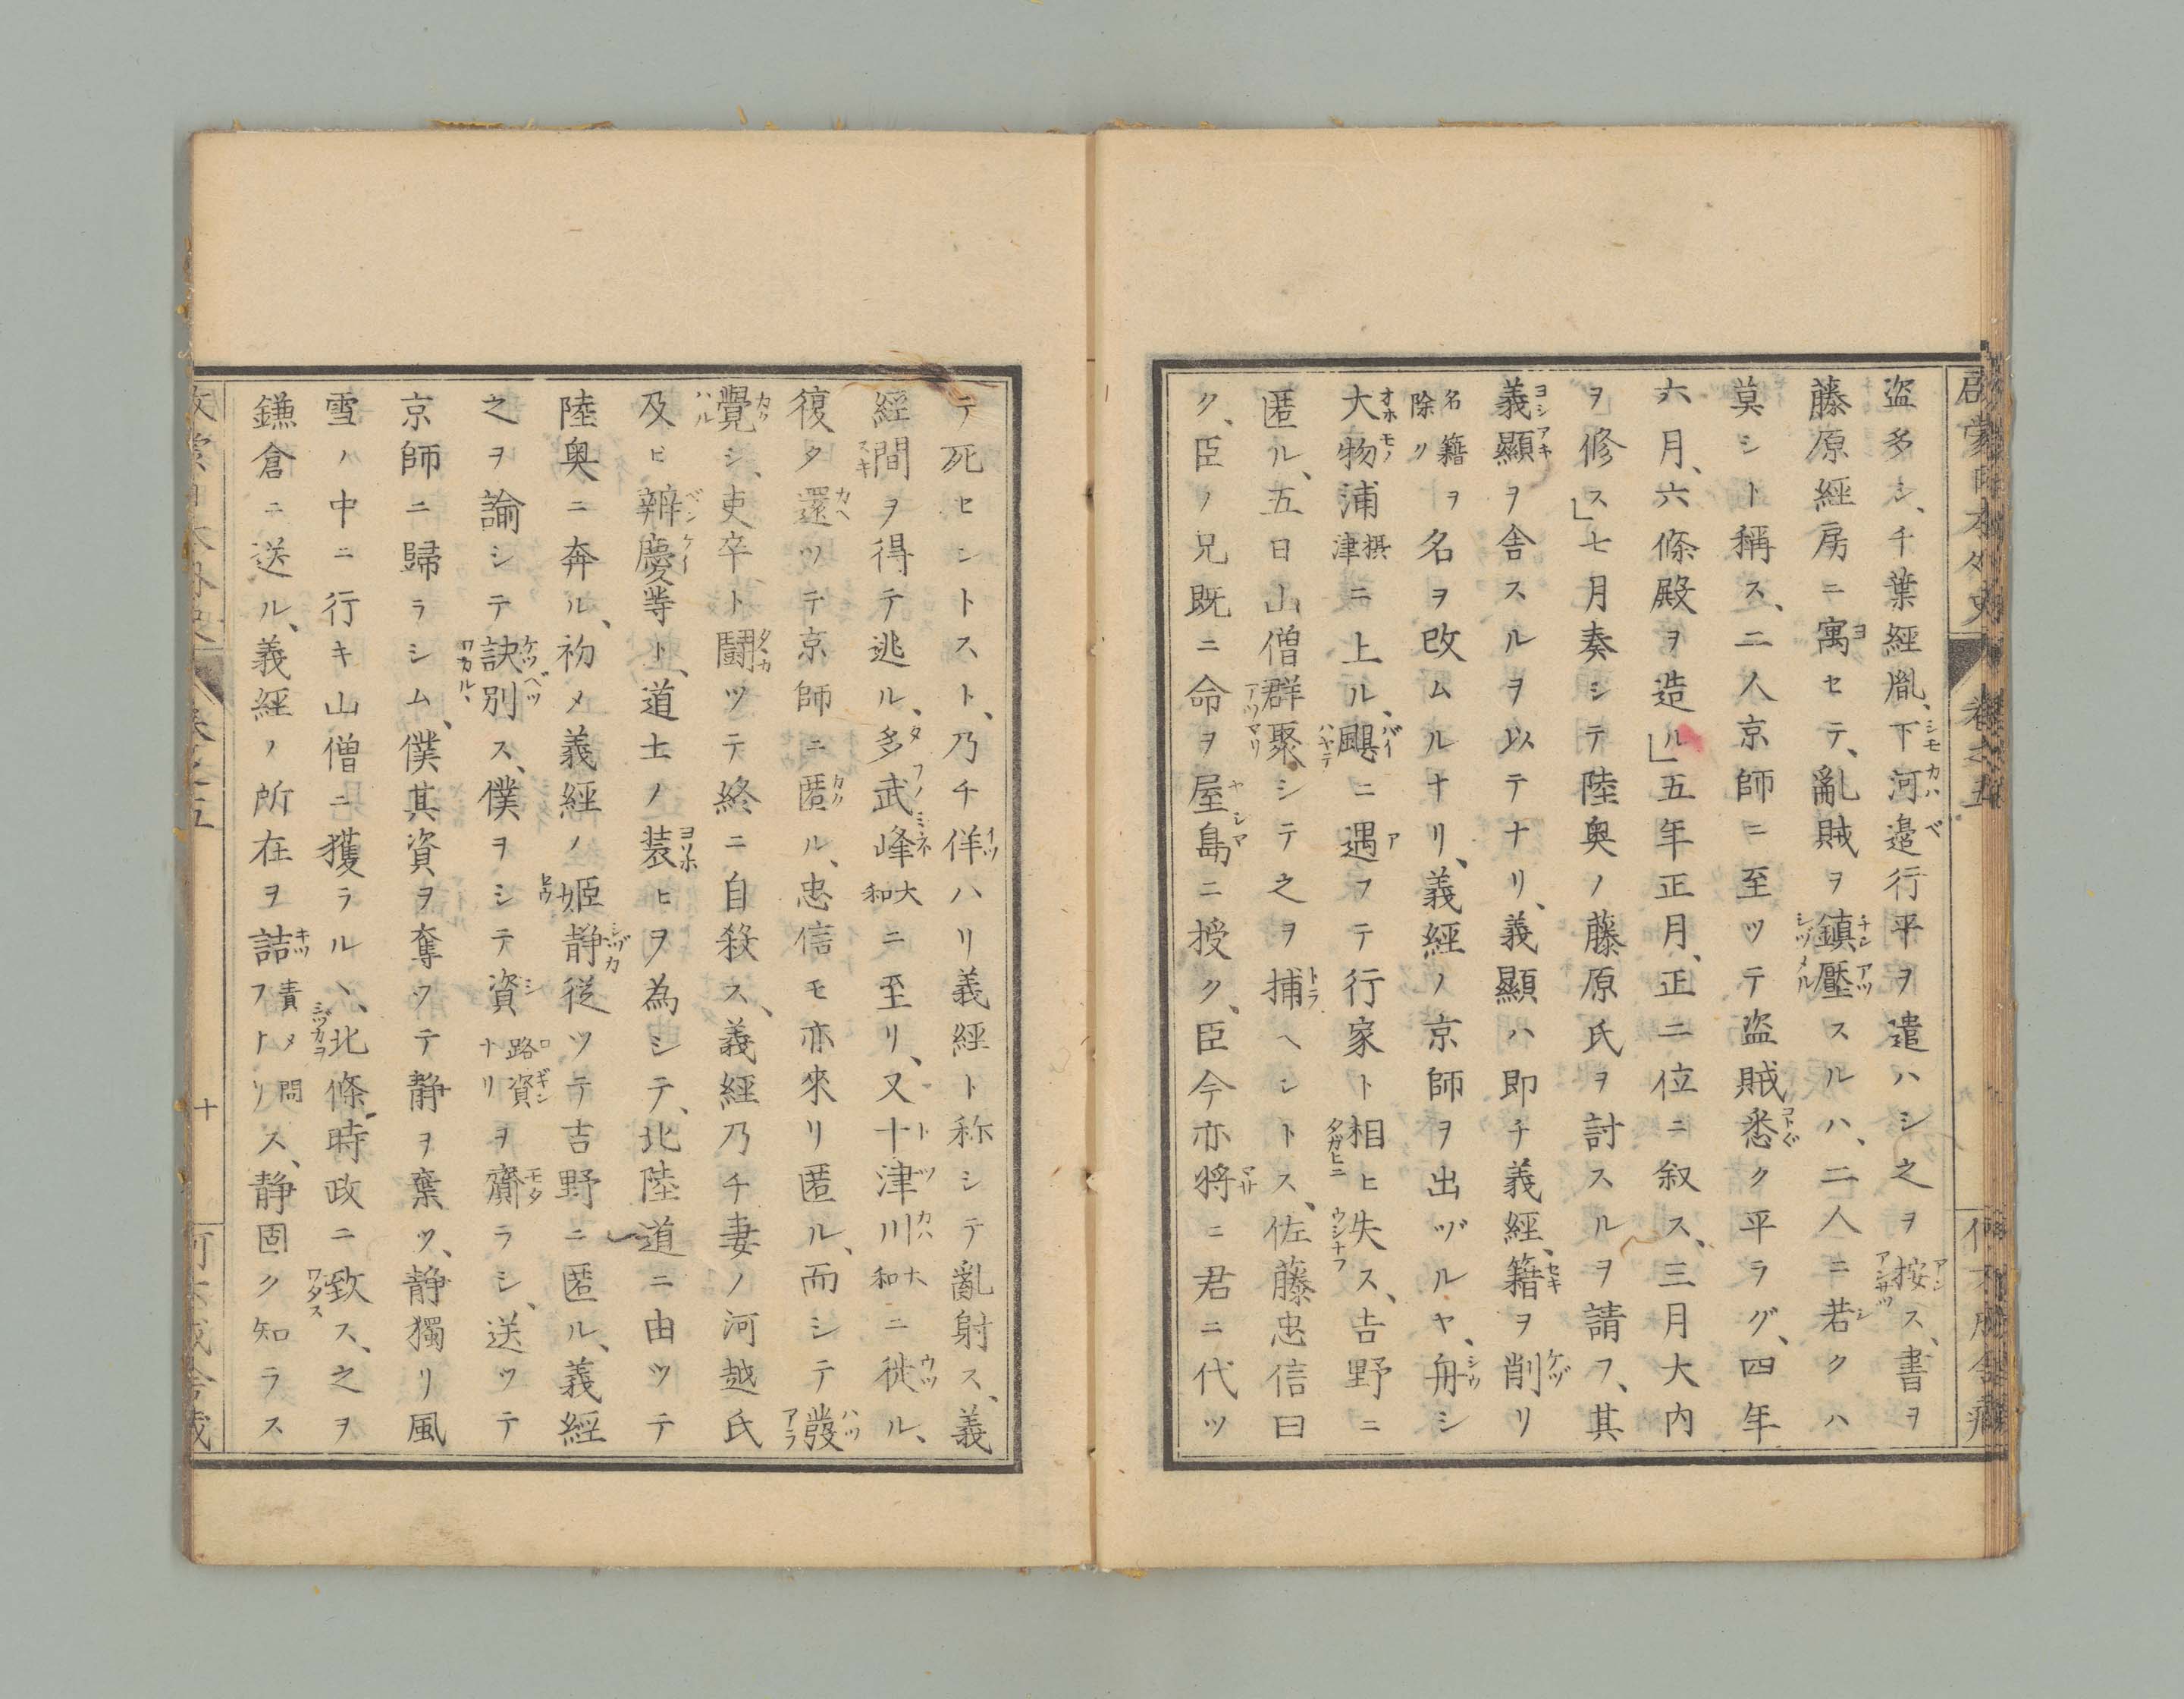 盜多シ、千葉經胤、下河邉行平ヲ遣ハシ之ヲ按ス、書ヲ
藤原經房ニ寓セテ、亂賊ヲ鎮壓スルハ、二人ニ若クハ
莫シト稱ス、二人京師ニ至ツテ盜賊悉ク平ラグ、四年
六月、六條殿ヲ造ル」五年正月、正二位ニ叙ス、三月大内
ヲ修ス」七月奏シテ陸奥ノ藤原氏ヲ討スルヲ請フ、其
義顯ヲ舎スルヲ以テナリ、義顯ハ即チ義經、籍ヲ削リ
名籍ヲ除ク名ヲ改ムルナリ、義經ノ京師ヲ出ヅルヤ、舟シ
大物浦摂津ニ上ル、颶ニ遇フテ行家ト相ヒ失ス、吉野ニ
匿ル、五日山僧群聚シテ之ヲ捕ヘントス、佐藤忠信曰
ク、臣ノ兄既ニ命ヲ屋島ニ授ク、臣今亦将ニ君ニ代ツ
テ死セントスト、乃チ佯ハリ義經ト称シテ亂射ス、義
經間ヲ得テ逃ル、多武峰大和ニ至リ、又十津川大和ニ徙ル、
復タ還ツテ京師ニ匿ル、忠信モ亦來リ匿ル、而シテ發
覺シ、吏卒ト鬪ツテ終ニ自殺ス、義經乃チ妻ノ河越氏
及ヒ辨慶等ト、道士ノ装ヒヲ為シテ、北陸道ニ由ツテ
陸奥ニ奔ル、初メ義經ノ姫静從ツテ吉野ニ匿ル、義經
之ヲ諭シテ訣別ス、僕ヲシテ資路資ナリヲ齎ラシ、送ツテ
京師ニ歸ラシム、僕其資ヲ奪ツテ静ヲ棄ツ、静獨リ風
雪ノ中ニ行キ山僧ニ獲ラルヽ、北條時政ニ致ス、之ヲ
鎌倉ニ送ル、義經ノ所在ヲ詰責メ問フトリス、静固ク知ラス
十